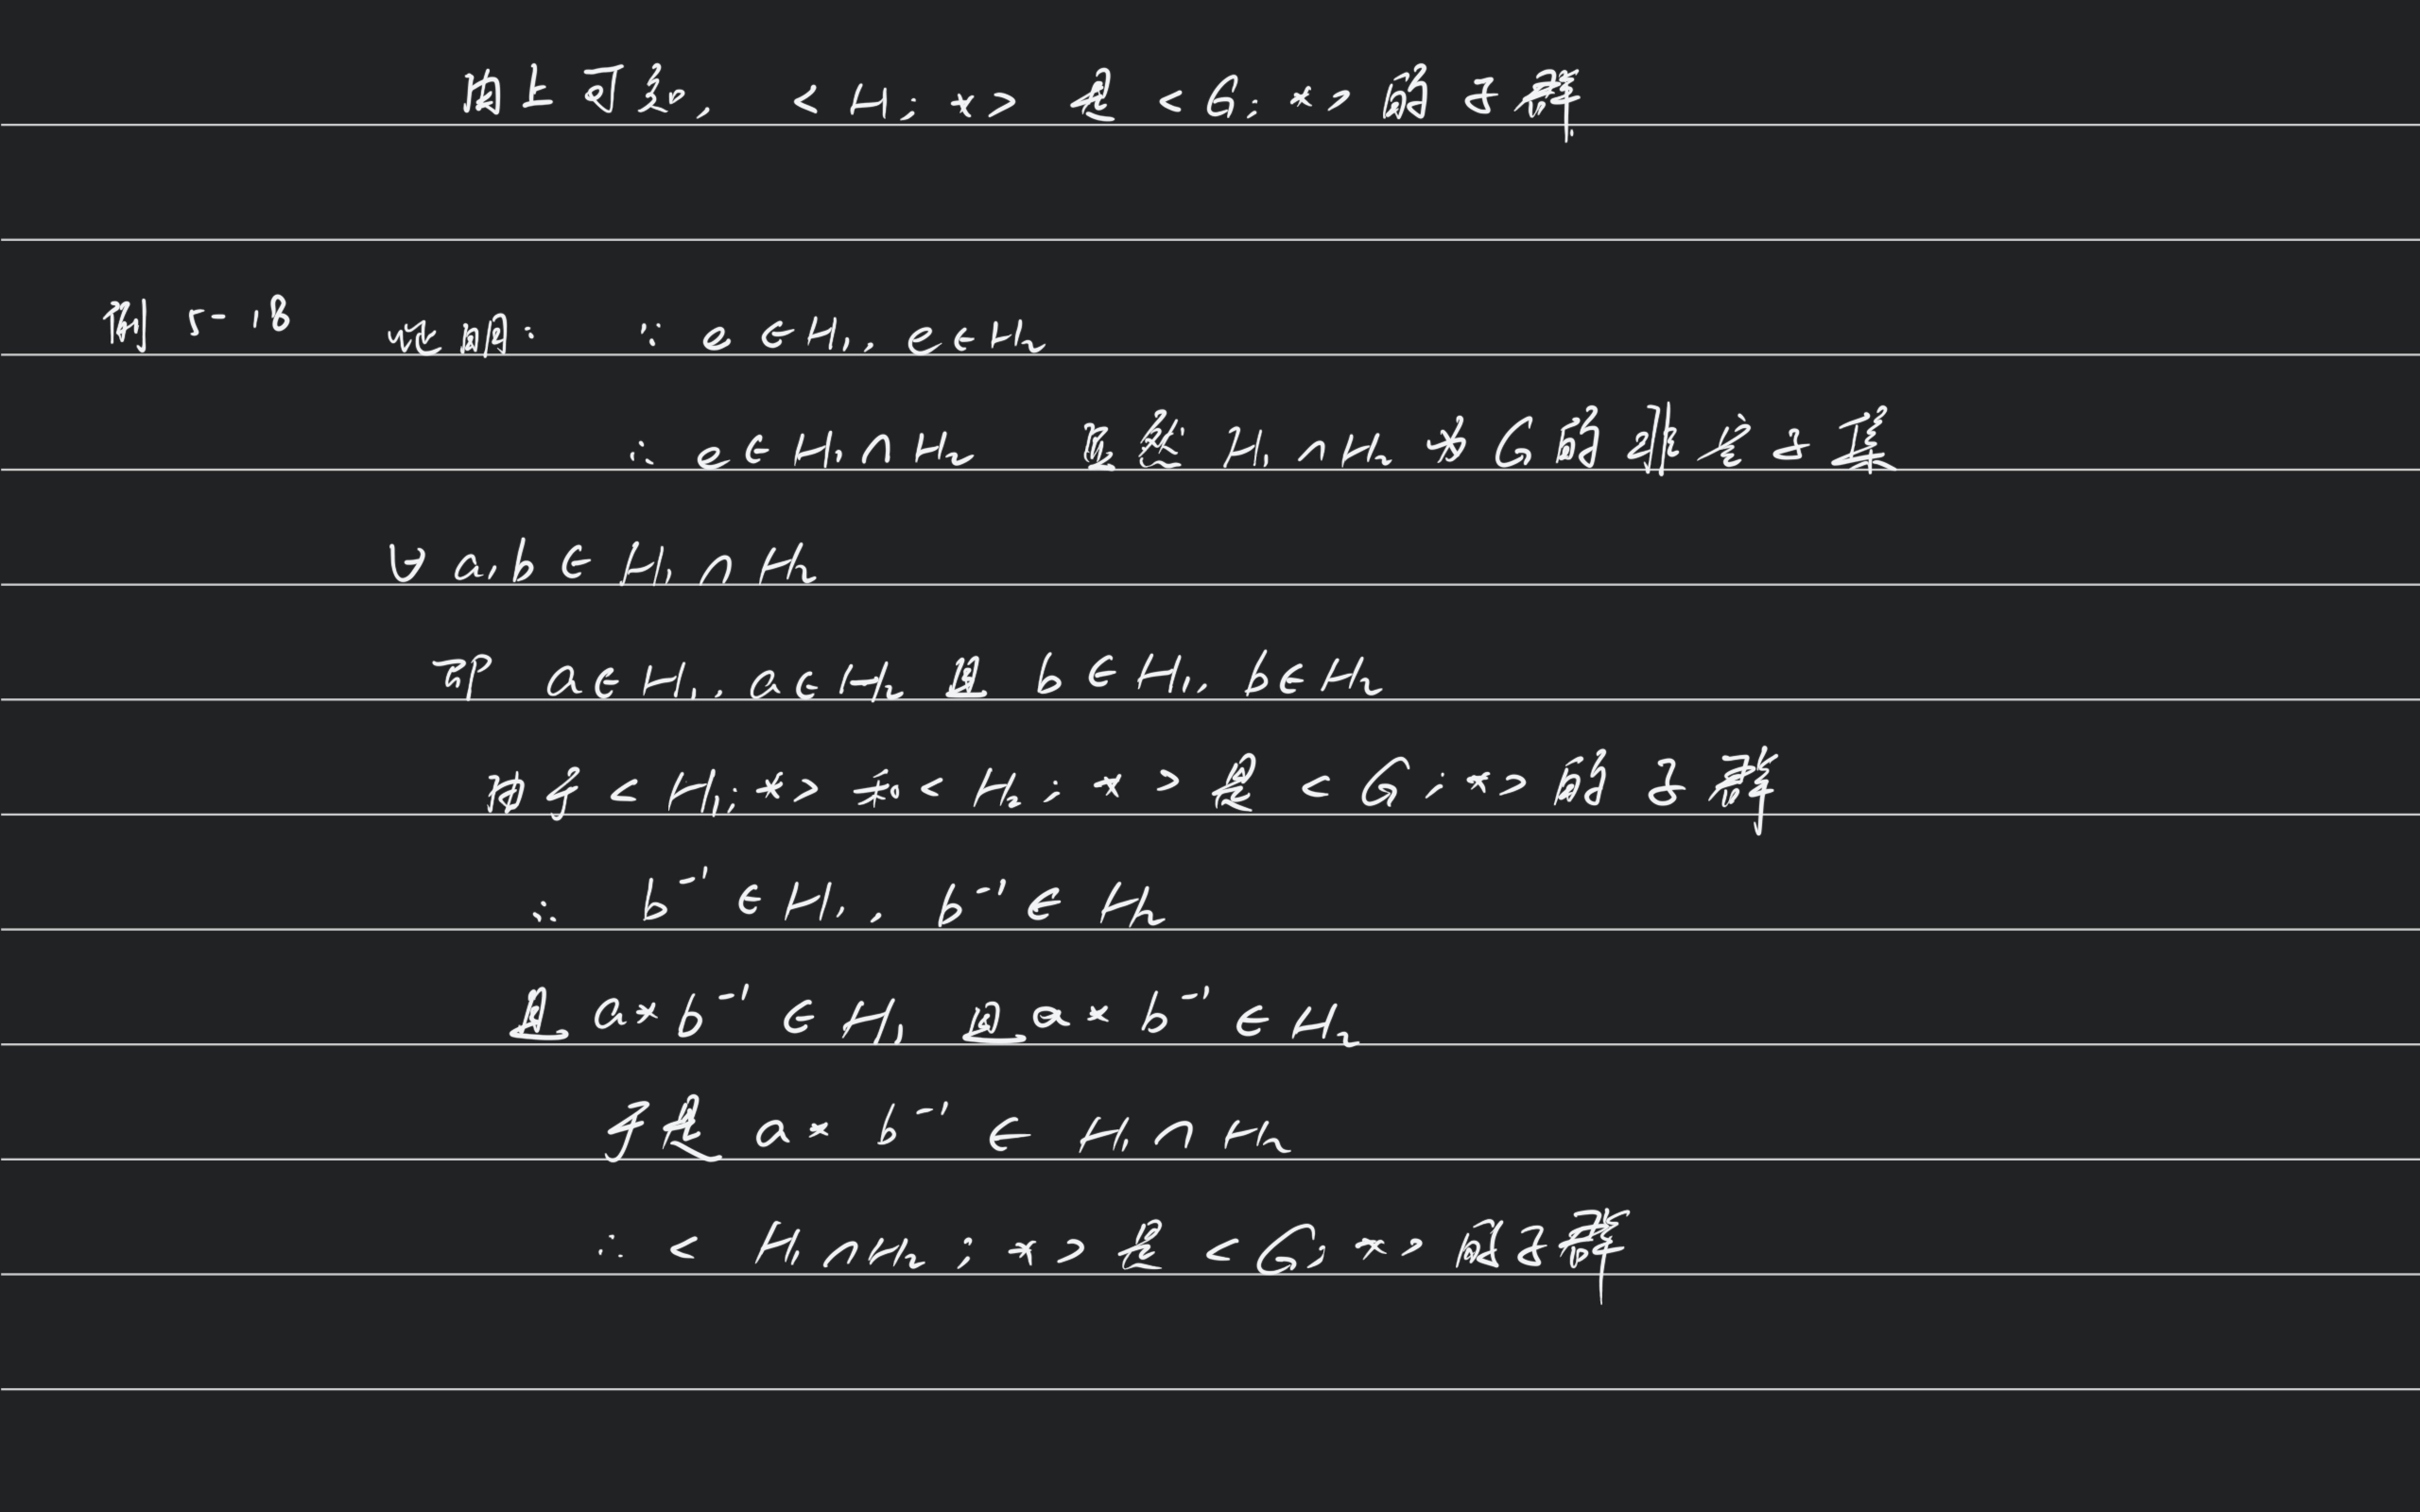 由上可知, <H; *> 是 <G; *> 的子群.
例 5-18 证明: ∵ e∈H₁, e∈H₂
∴ e∈H₁∩H₂ 显然 H₁∩H₂ 为 G 的非空子集
∀ a,b ∈ H₁∩H₂
即 a∈H₁, a∈H₂ 且 b∈H₁, b∈H₂
由于<H₁; *> 和 <H₂; *> 是 <G; *> 的子群
∴ b⁻¹ ∈ H₁, b⁻¹ ∈ H₂
且 a*b⁻¹ ∈ H₁ 且 a*b⁻¹ ∈ H₂
于是 a*b⁻¹ ∈ H₁∩H₂
∴ <H₁∩H₂; *> 是 <G; *> 的子群